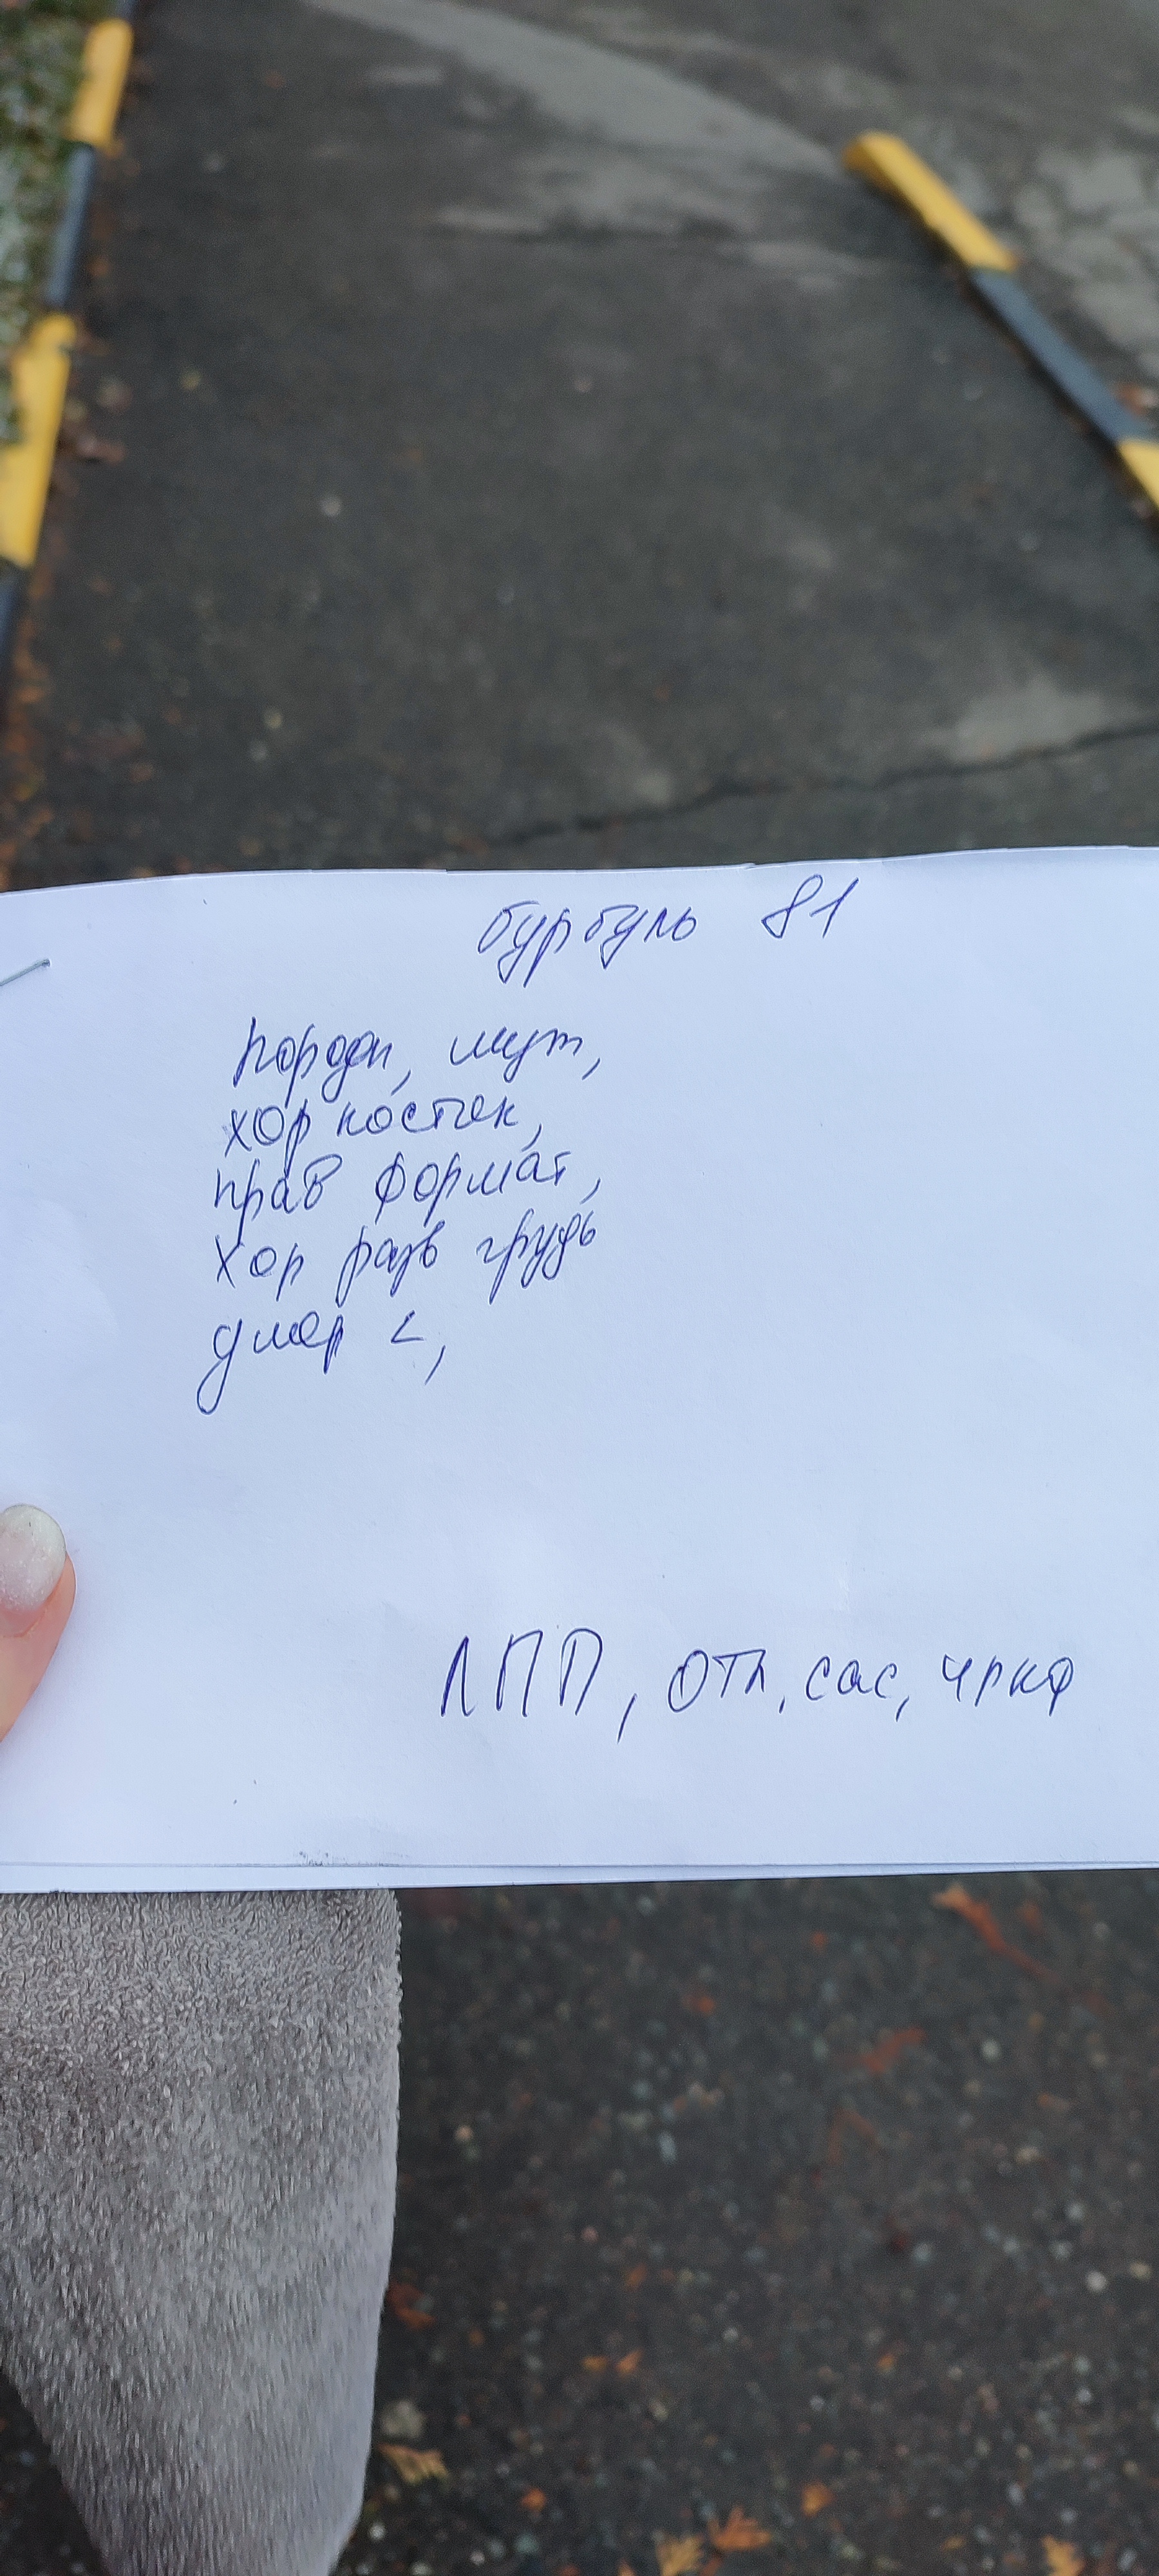 бурбуль 81
породн, щут,
хор костяк,
прав формат,
хор разв грудь
умер <,
ЛПП, отл, сас, чркф